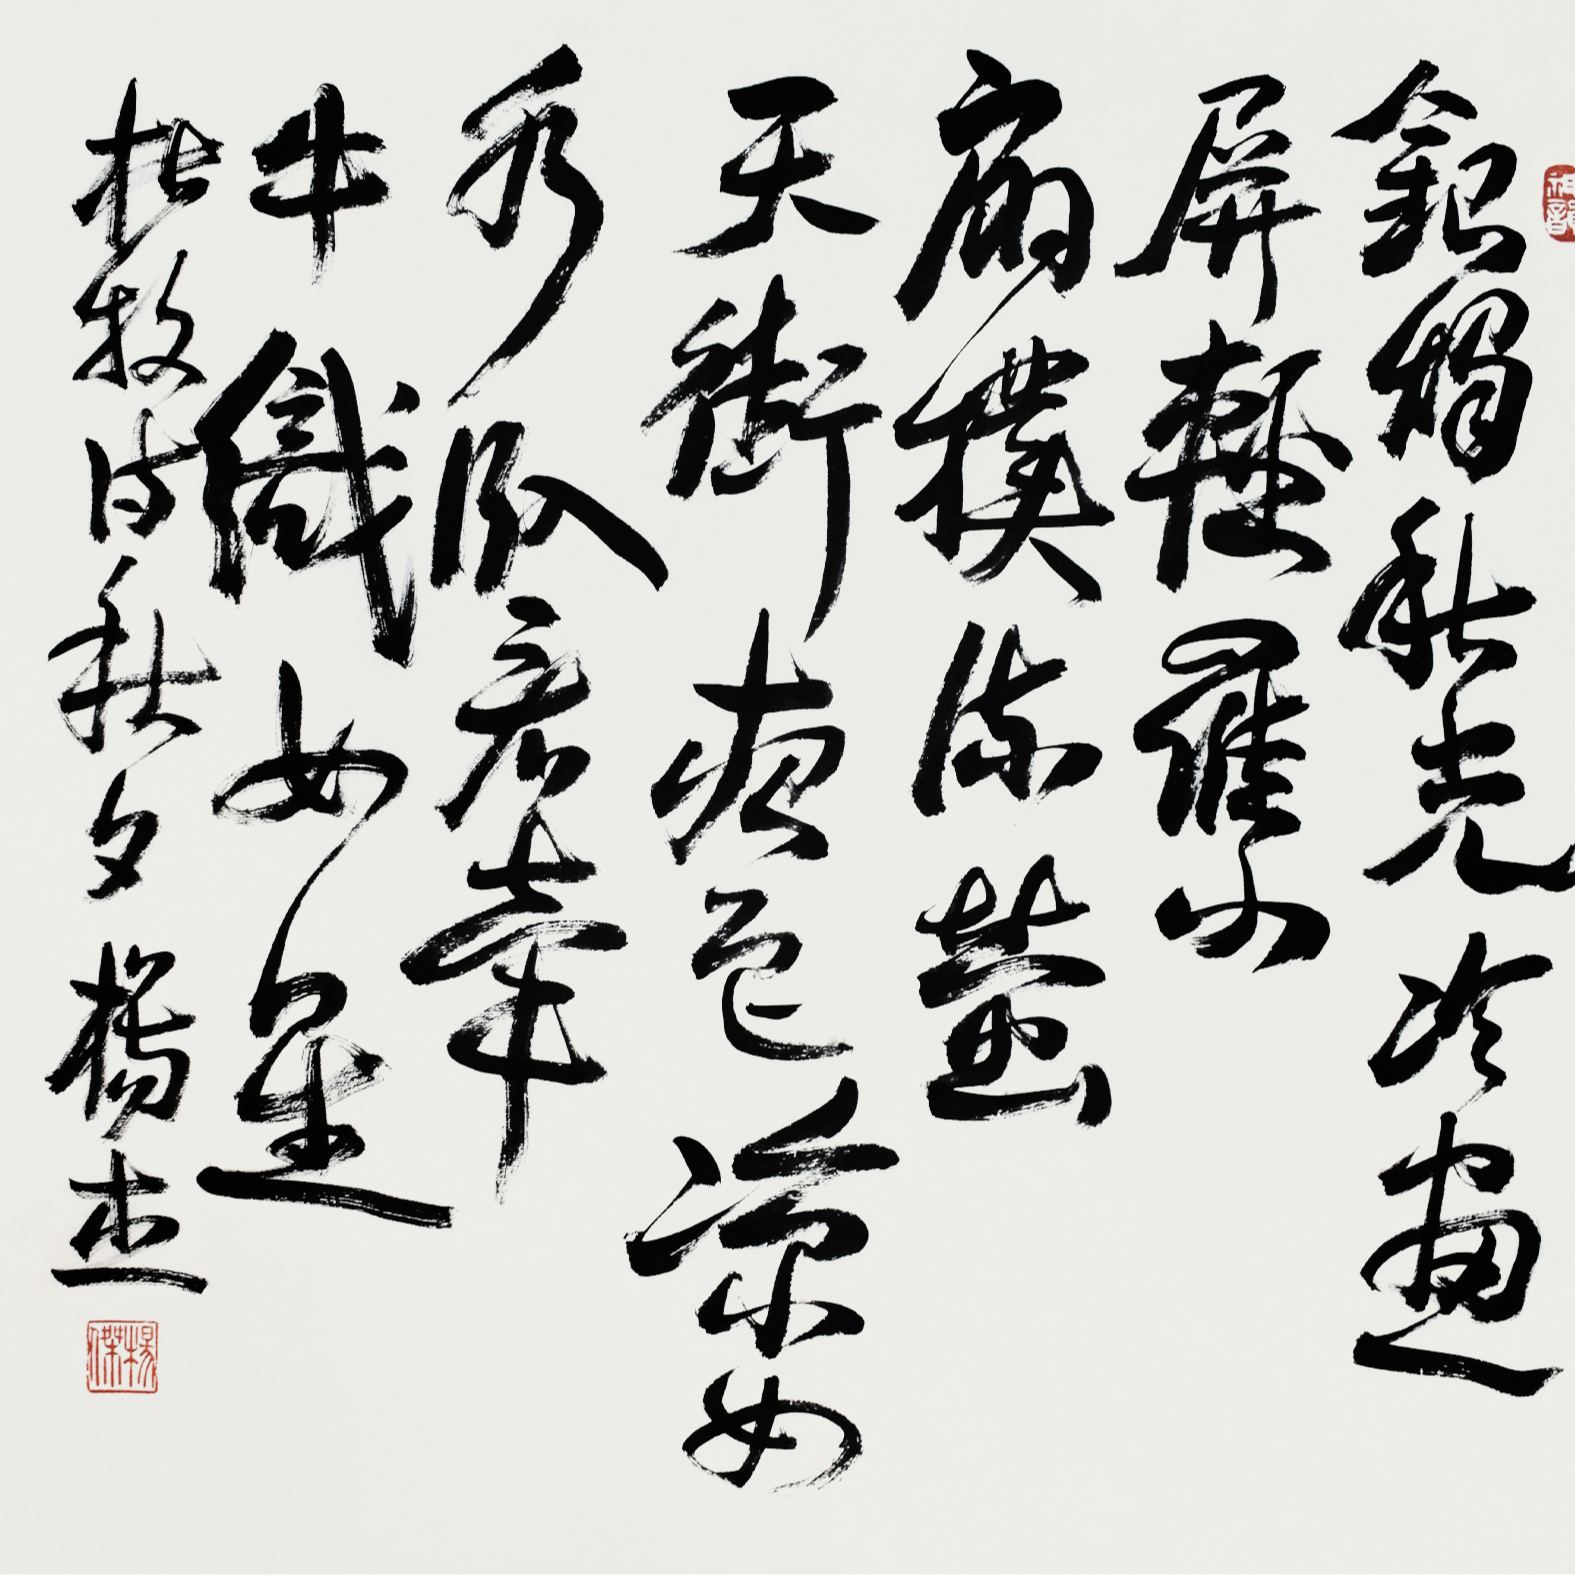 銀燭秋光冷畫
屏輕羅小
扇撲流螢
天街夜色涼如
水臥看牽
牛織女星
杜牧詩秋夕 楊杰
楊傑